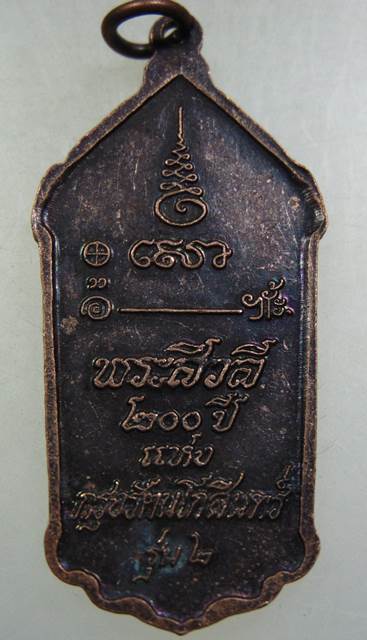 พระสีวลี
๒๐๐ ปี
แห่ง
กรุงรัตนโกสินทร์
รุ่น ๒